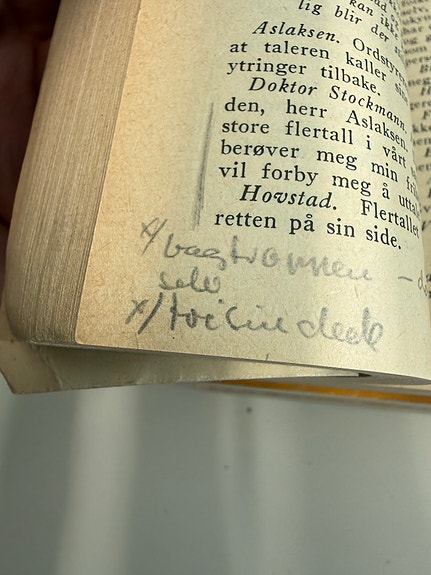 kan ikke
lig blir der s
Aslaksen. Ordstyre
at taleren kaller sin
ytringer tilbake.
Doktor Stockmann.
den, herr Aslaksen.
store flertall i vårt
berøver meg min fri
vil forby meg å utta
Hovstad. Flertallet
retten på sin side.
x/
selv
x/